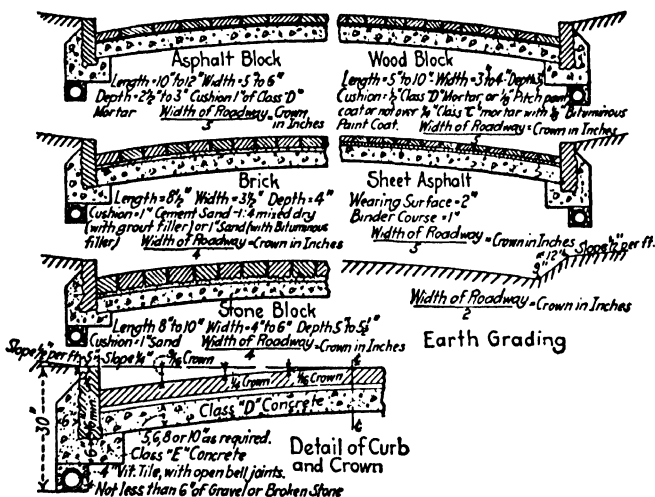 Asphalt Block
Length=10"to12" Width=5"to6"
Depth=2½"to3" Cushion 1"of Class"D"
Mortar Width of Roadway=Crown in Inches
5
Wood Block
Length=5"to10" Width=3"to4"
Cushion=½"Class"D"Mortar, or ⅛"Pitch paint
coat or not over "Class"C"mortar with ⅛"Bituminous
Paint Coat. Width of Roadway=Crown in Inches
5
Brick
Length=8½" Width=3½" Depth=4"
Cushion=1"Cement Sand-1:4 mixed dry
(with grout filler) or 1"Sand(with Bituminous
filler) Width of Roadway=Crown in Inches
4
Sheet Asphalt
Wearing Surface=2"
Binder Course=1"
Width of Roadway=Crown in Inches
5
12"
Slope½"per ft.
9"
Width of Roadway=Crown in Inches
2
Earth Grading
Stone Block
Length 8"to10" Width=4"to6" Depth 5"to5½"
Cushion=1"Sand
Width of Roadway=Crown in Inches
4
Slope½"per ft. 5" Slope¼" Crown
¼Crown
1/16Crown
30"
Class "D" Concrete
5,6,8 or 10"as required.
Class"E"Concrete
4"Vit. Tile, with open bell joints.
Not less than 6"of Gravel or Broken Stone
Detail of Curb
and Crown